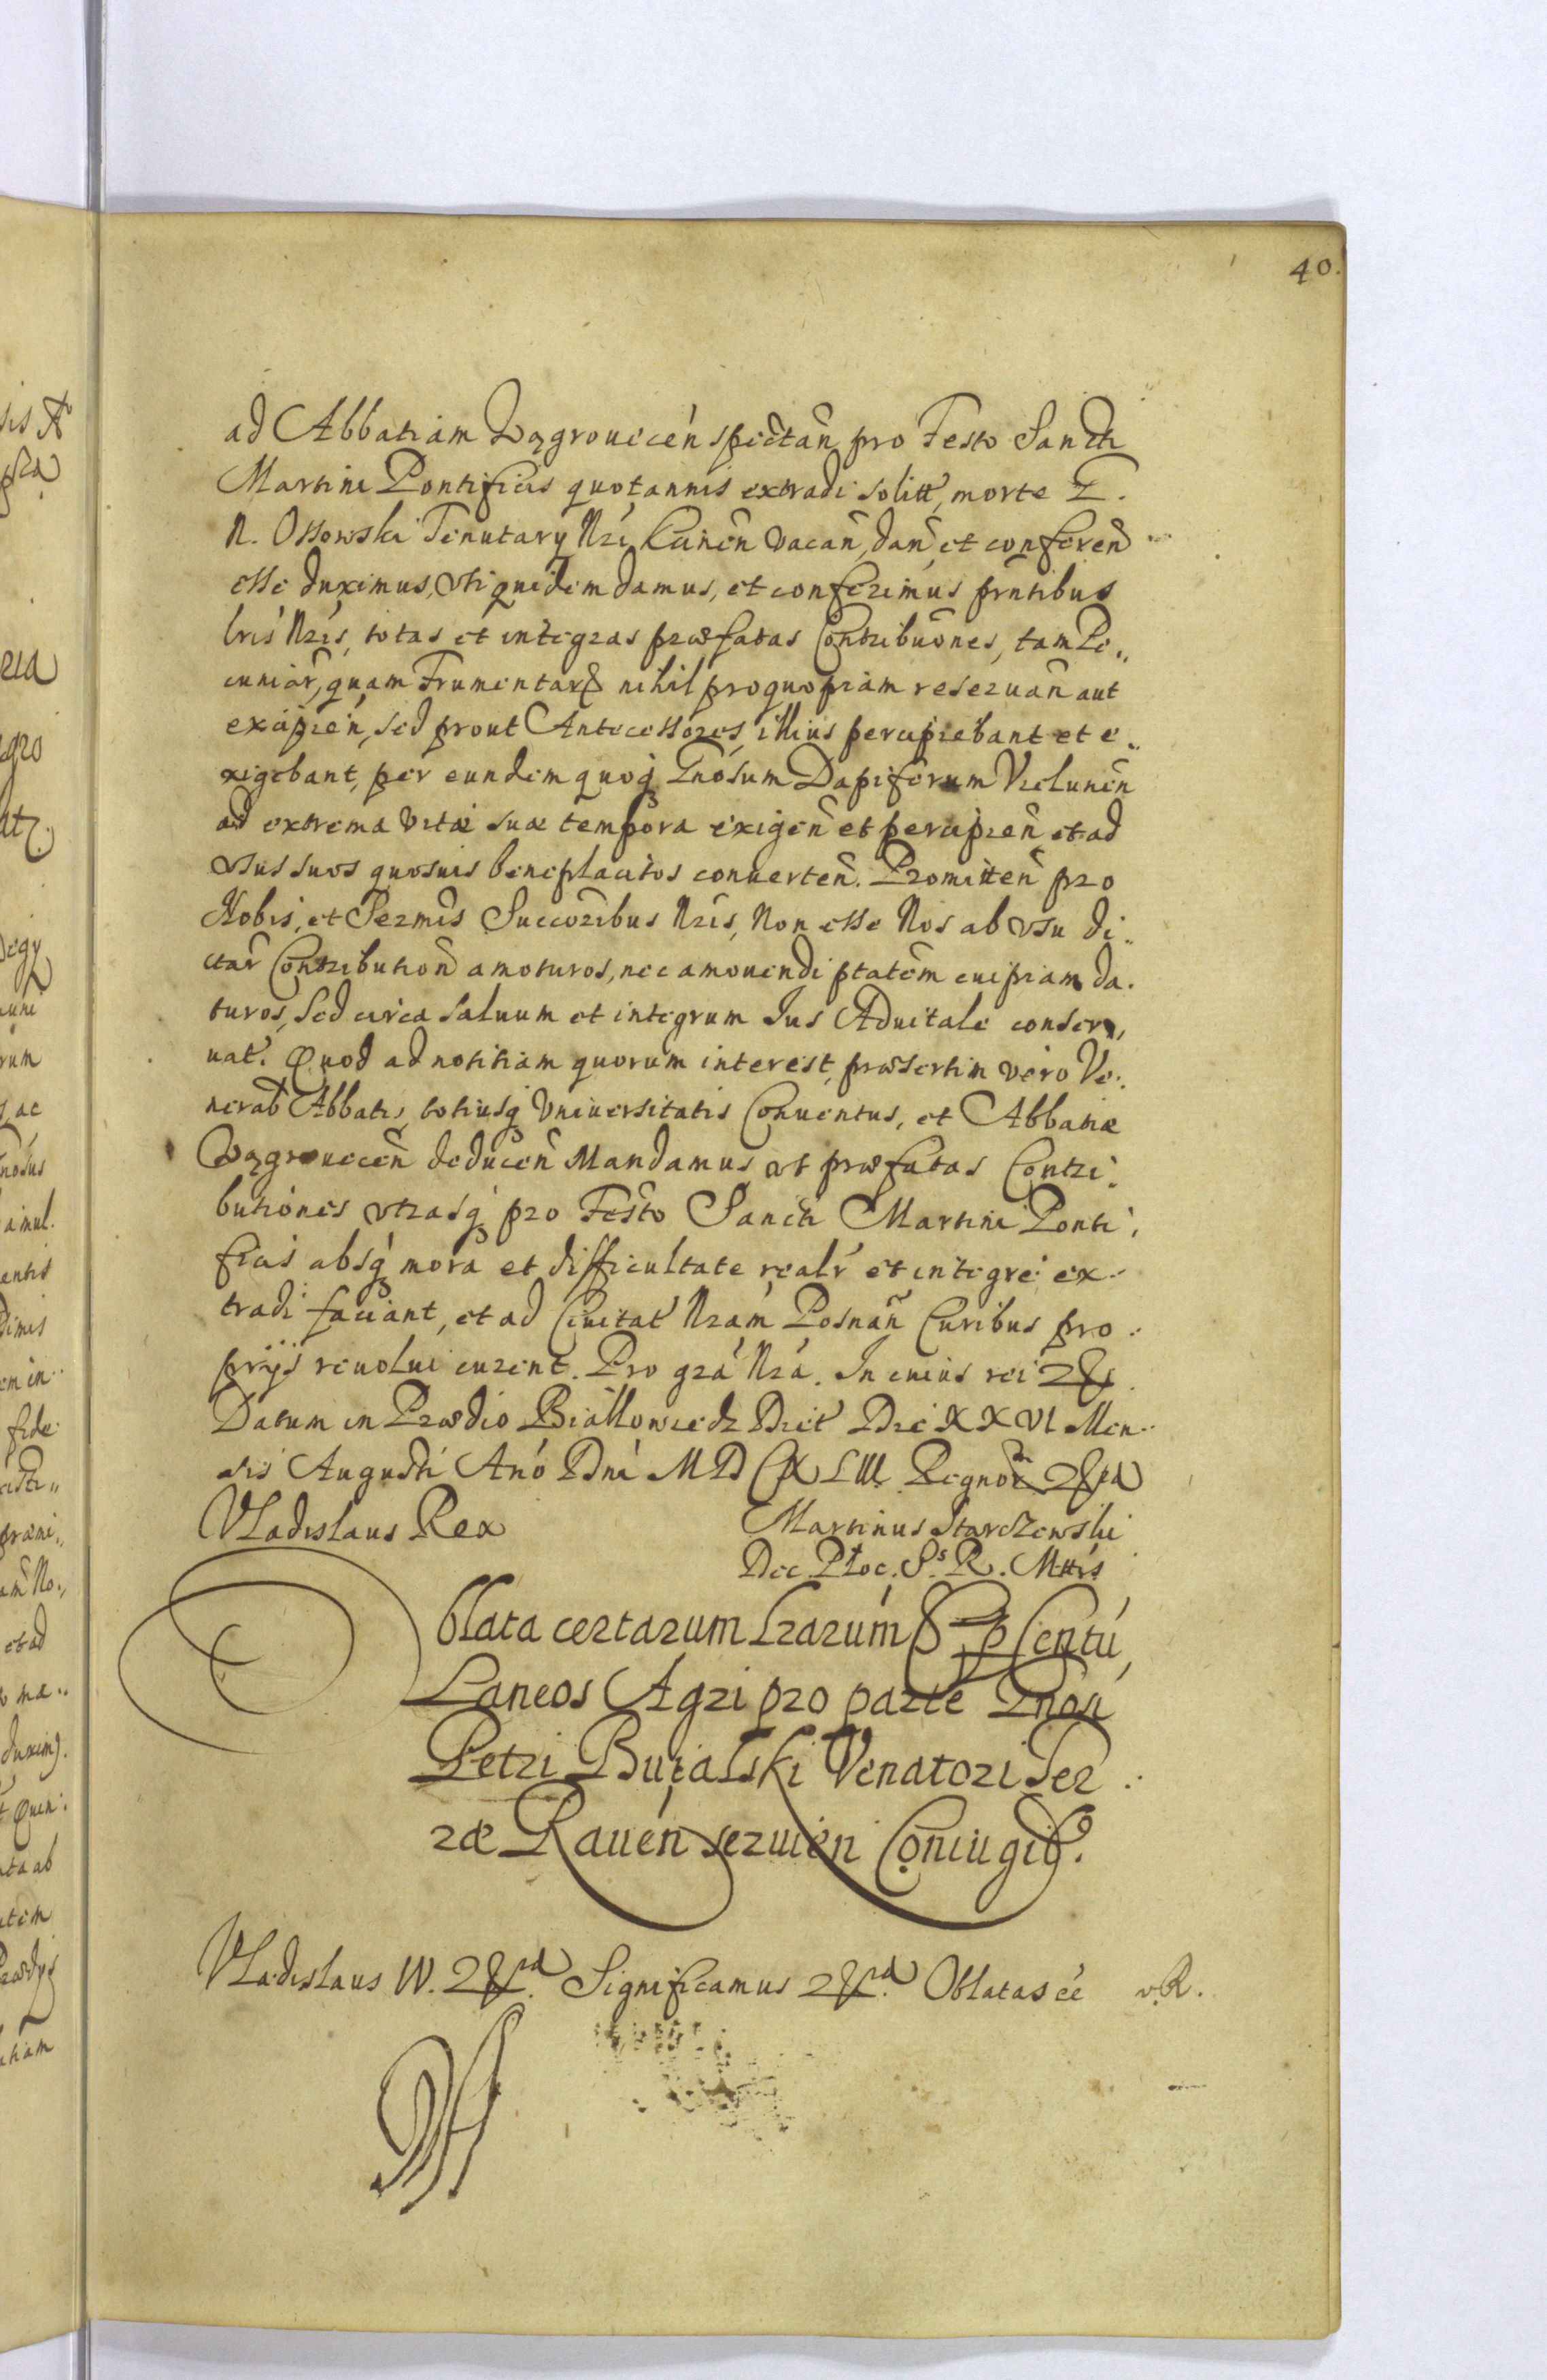 40.
ad Abbatiam Wągrovicen̄ spectan̄ pro Festo Sancti
Martini Pontificis quotannis extradi solitt, morte G.
N. Ossowski Tenutarÿ Nrī Kcinen̄ vacan̄, dan̄ et conferen̄
esse duximus, vti quidem damus, et conferimus pn̄tibus
lrīs Nrīs, totas et integras præfatas Contribuōnes, tam Pe„
cuniar̄, quam Frumentar̄ nihil pro quopiam reseruan̄ aut
excipien̄, sed prout Antecessores illius percipiebant et e„
xigebant, per eundem quoq̨ Gnōsum Dapiferum Vielunen̄
ad extrema vitæ suæ tempora exigen̄ et percipien̄ et ad
vsus suos quosuis beneplacitos conuerten̄. Promitten̄ pro
Nobis, et Sermīs Succōribus Nrīs, Non esse Nos ab vsu di„
ctar̄ Contribution̄ amoturos, nec amouendi ptātem cuipiam da.
turos, Sed circa saluum et integrum Jus Aduitale conser„
uat. Quod ad notitiam quorum interest, præsertim vero Ve:
nerab Abbatis, totiusq̨ Vniuersitatis Conuentus, et Abbatiæ
Wągrouecen̄ deducen̄ Mandamus vt præfatas Contri:
butiones vtrasq̨ pro Festo Sancti Martini Ponti:
ficis absq̨ mora et difficultate realr̄ et integre ex:
tradi faciant, et ad Ciuitat Nram̄ Posnan̄ Curibus pro:
prijs reuolui curent. Pro grā Nrā. In cuius rei &
Datum in Prædio Białłowiedz Diet Die XXVI Men:
sis Augusti Anō Dnī MDCXLIII Regnor̄ &
Vladislaus Rex Martinus Starczewski
Dec. Płoc. S. R. Mttīs
Oblata certarum Lrarūm Centū
Laneos Agri pro parte Gnosi
Petri Buialski Venatori Ter:
ræ Rauen̄ seruien̄ Coniugib.
Vladislaus IV. & Significamus & Oblatas eē v. R.